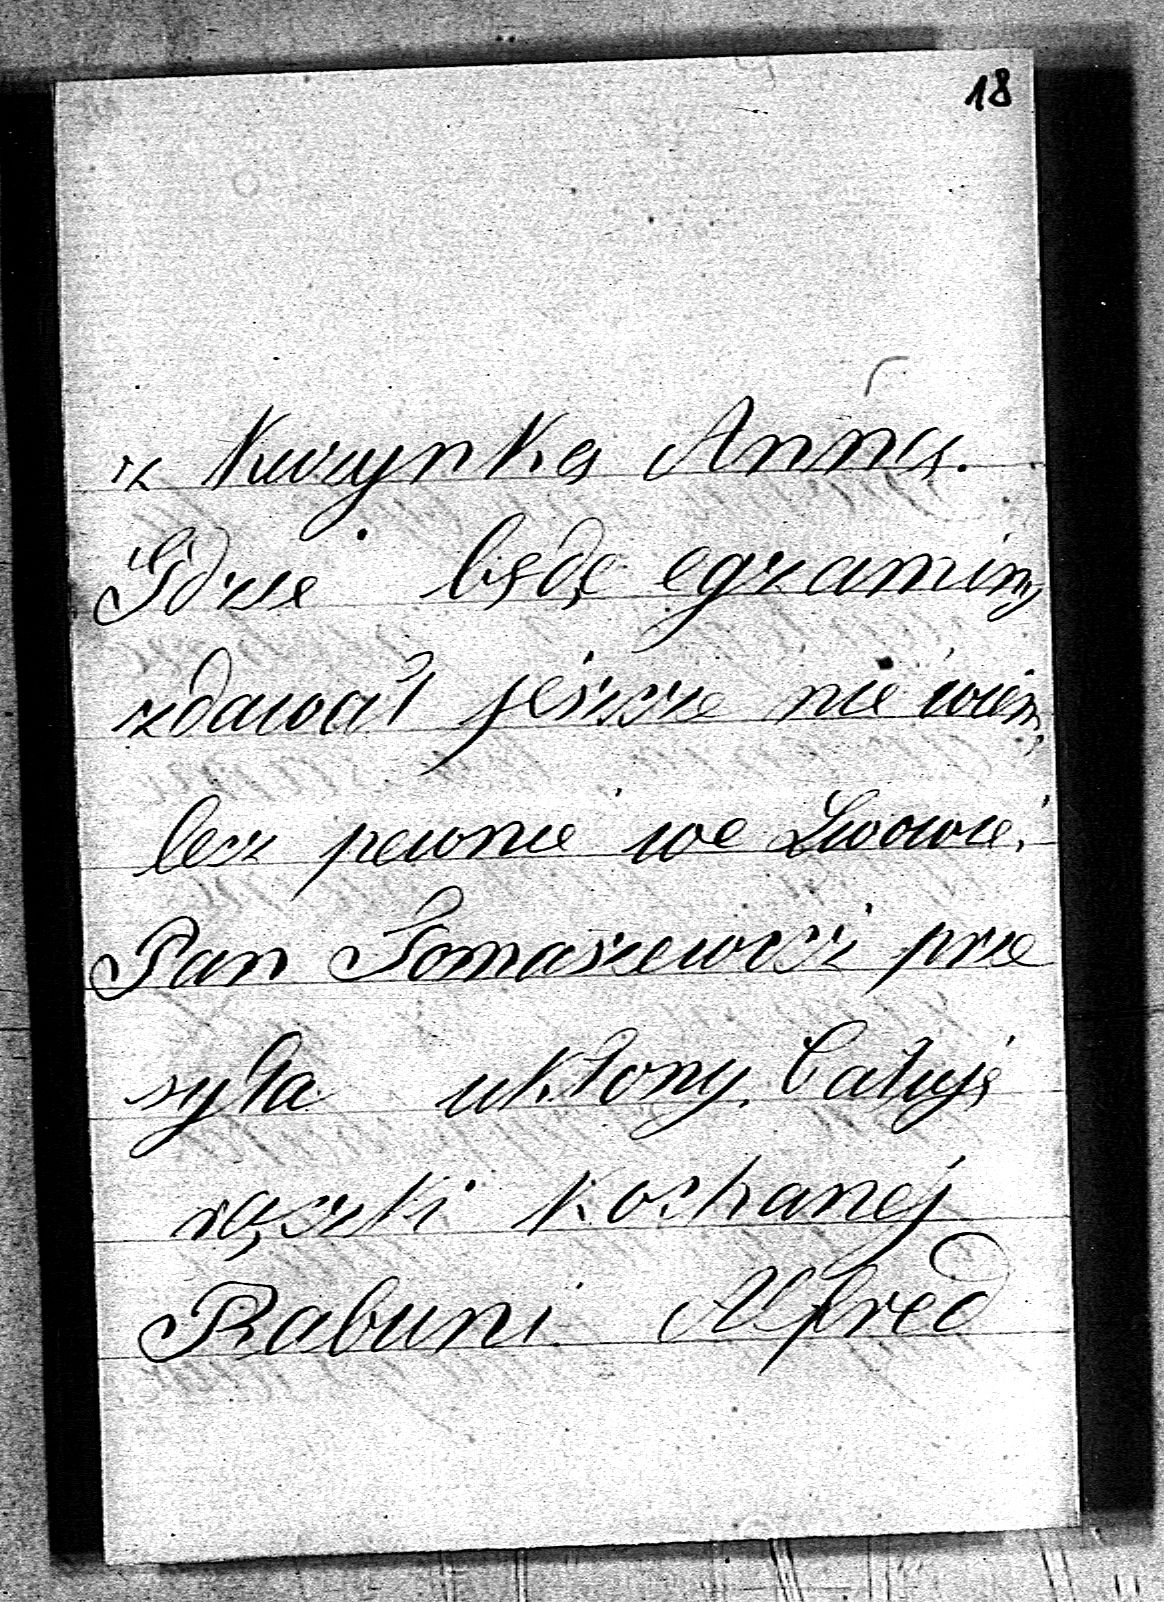 18
z Kuzynką Anną.
Gdzie będę egzaminy
zdawał jeszcze nie wiem,
lecz pewnie we Lwowie.
Pan Tomaszewicz prze
syła ukłony. Całuję
rączki Kochanej
Babuni Alfred